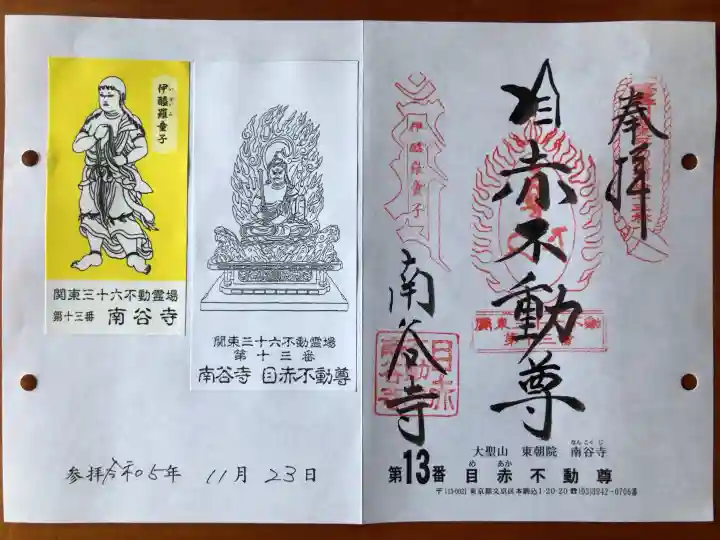 伊醯羅童子
関東三十六不動霊場
第十三番 南谷寺
関東三十六不動霊場
第十三番
南谷寺 目赤不動尊
参拝 令和5年 11月 23日
奉拝
目赤不動尊
南谷寺
伊醯羅童子
関東三十六不動
第十三番
目赤
不動
南谷寺
なんこくじ
大聖山 東朝院 南谷寺
め あか
第13番 目赤不動尊
東京都文京区本駒込1-20-20 ☎(03)3942-0706番